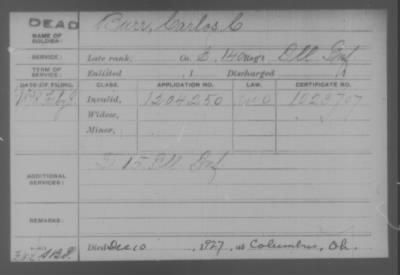 DEAD
NAME OF SOLDIER:
Burr, Carlos C
SERVICE:
Late rank, Co. E, 140 Reg't Ill Inf
TERM OF SERVICE:
Enlisted , 1 Discharged
DATE OF FILING. CLASS. APPLICATION NO. LAW. CERTIFICATE NO.
Invalid, 1204250
Widow,
Minor,
ADDITIONAL SERVICES:
Ill Inf
REMARKS:
Died Dec 10 1927, at Columbus, Oh.